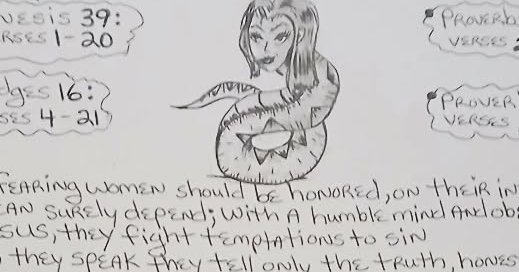 NESIS 39:
RSES 1-20
dges 16:
SES 4-21
PROVERB
VERSES
PROVER
VERSES
FEARING WOMEN should be honored, on their in
AN surely depend; with A humble mind And ob
SUS, they fight temptations to sin
they speak they tell only the truth, hones